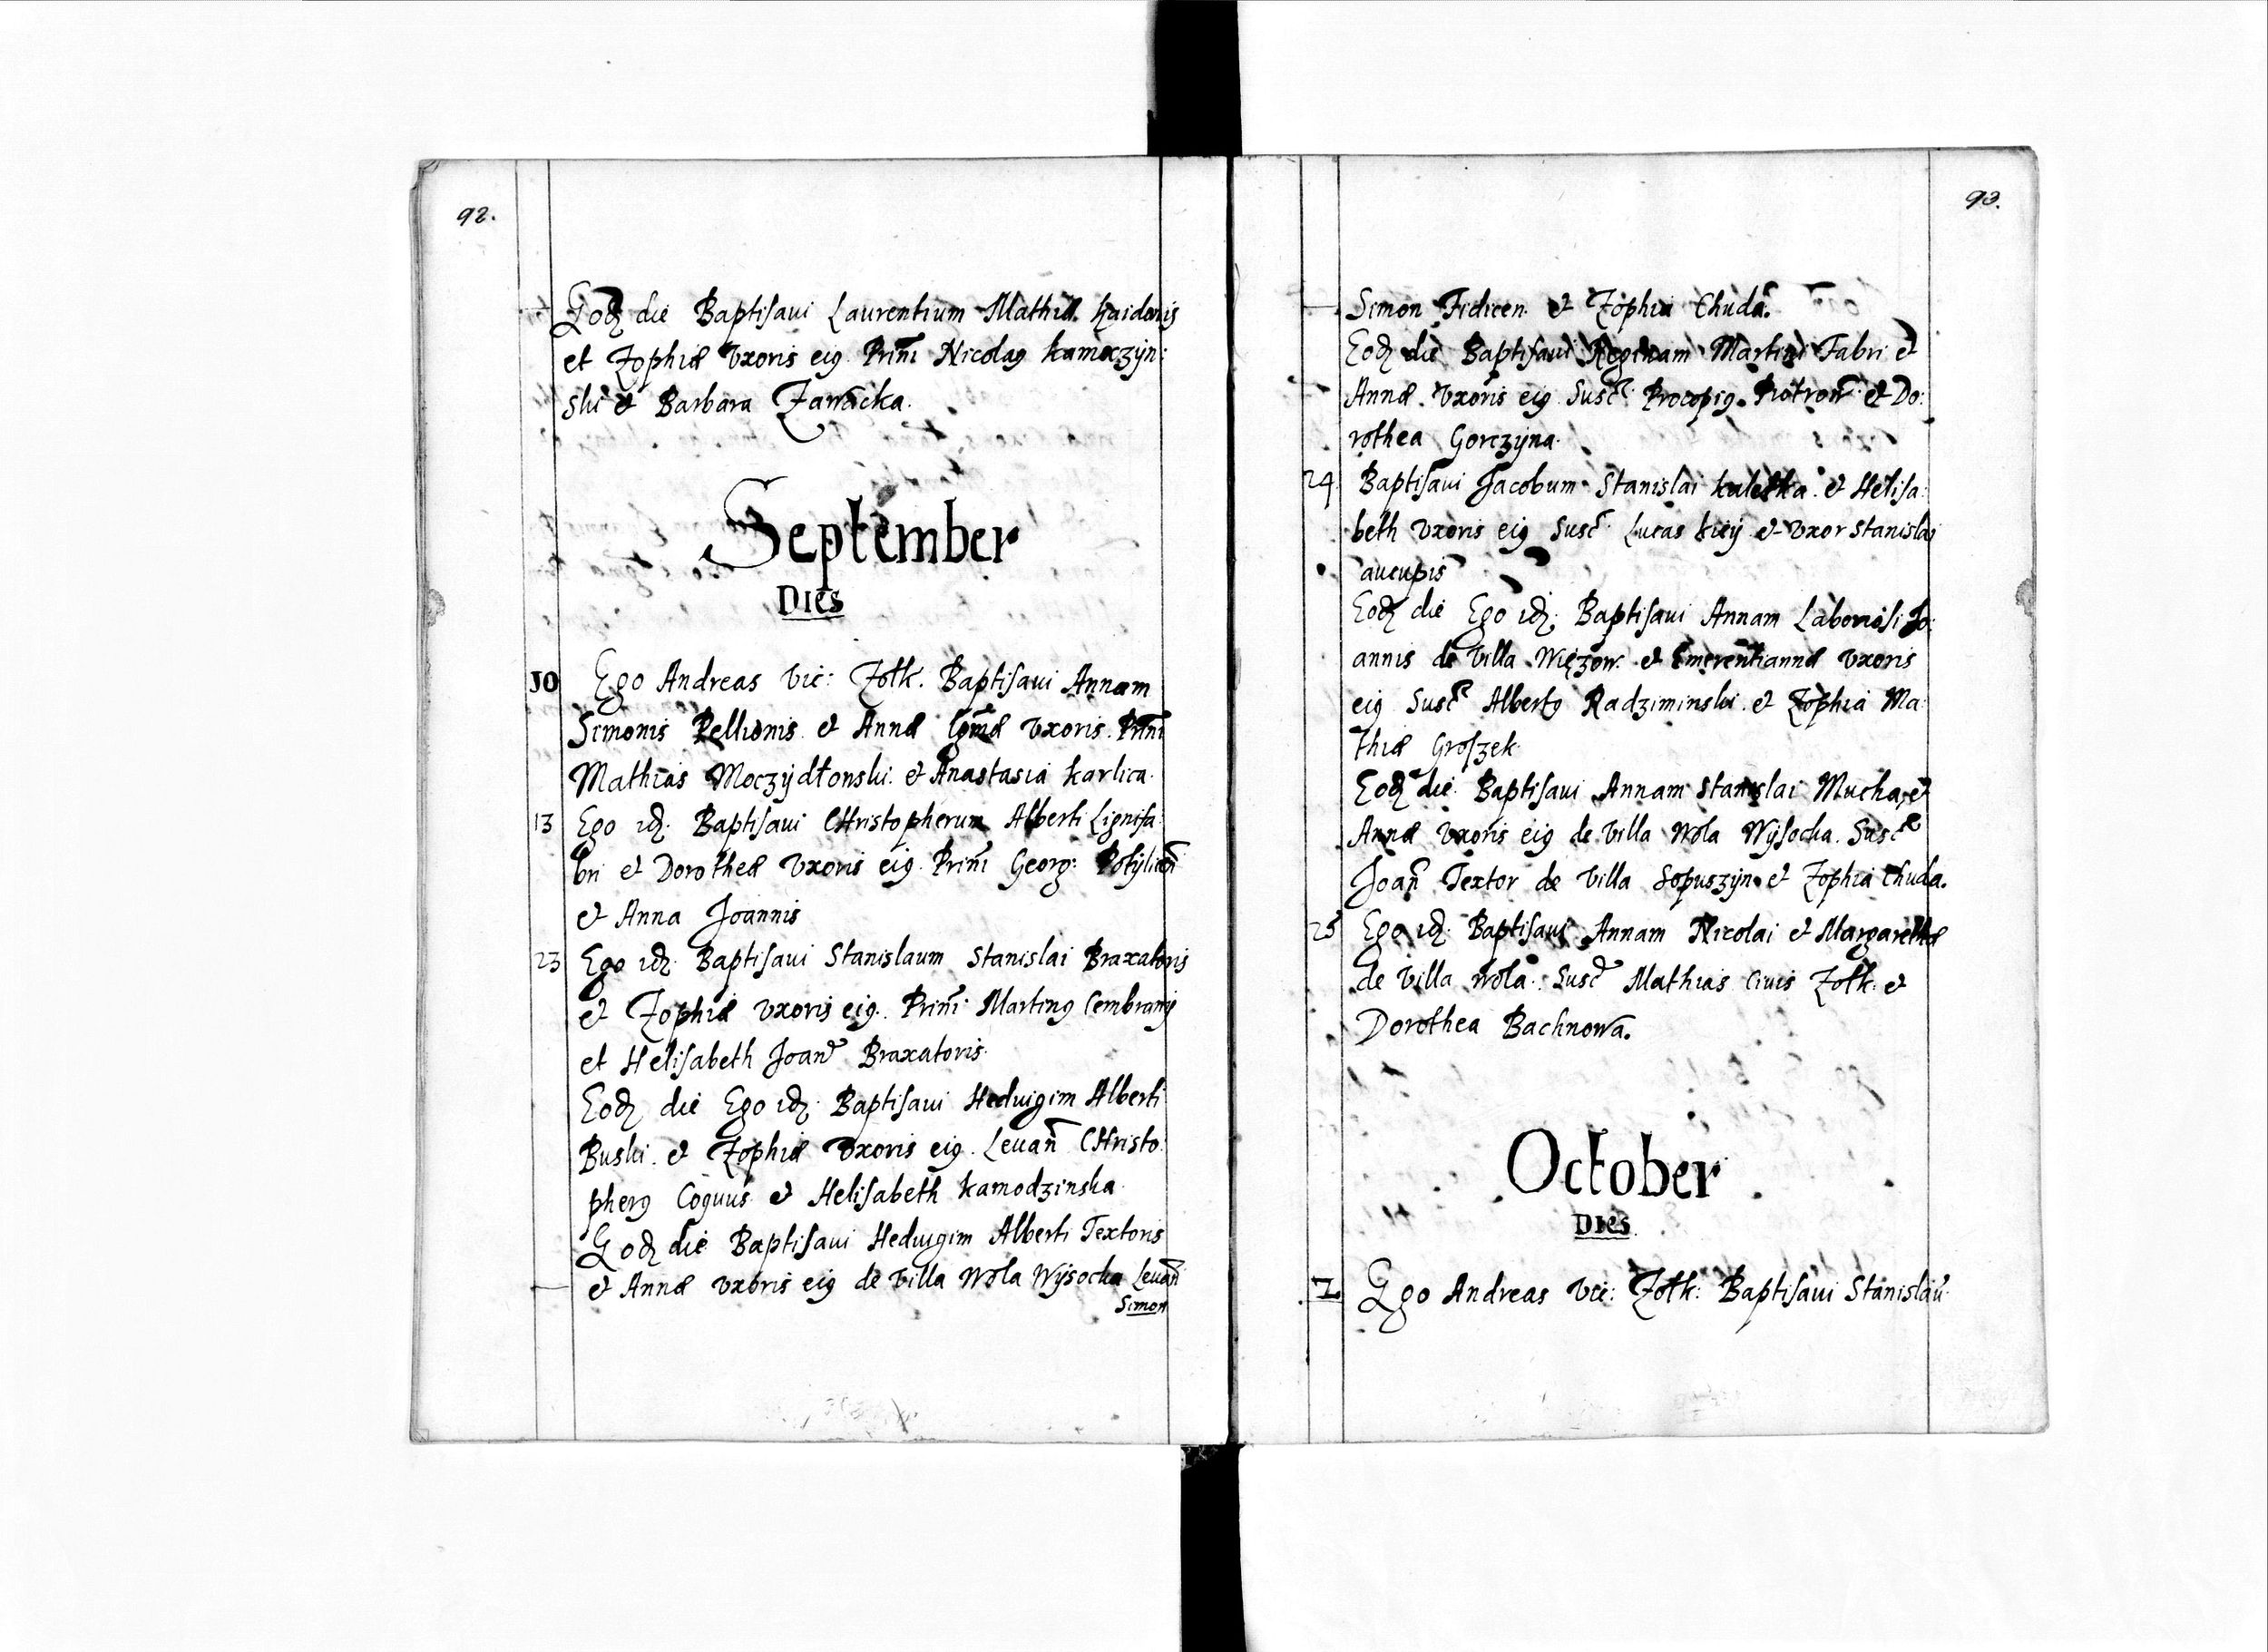 92.
Eodē die Baptisaui Laurentium Mathiæ Kaidanis
et Zophiæ Vxoris eiꝰ. Prim̄ Nicolaꝰ Kamoczÿn:
ski et Barbara Zawacka.
September
Dies
10 Ego Andreas Vic: Zolk. Baptisaui Annam
Simonis Pellionis et Annæ Vxoris. Prim̄
Mathias Moczÿdłonski. et Anastasia Karlica.
13 Ego idē. Baptisaui CHristopherum Alberti Lignifa:
bri et Dorotheæ Vxoris eiꝰ. Prim̄ Georg: Potÿlicen̄
et Anna Joannis
23 Ego idē. Baptisaui Stanislaum Stanislai Braxatoris
et Zophiæ Vxoris eiꝰ. Prim̄: Martinꝰ Cembranÿ
et Helisabeth Joan̄ Braxatoris.
Eodē die Ego idē. Baptisaui Heduigim Alberti
Buski. et Zophiæ Vxoris eiꝰ. Leuan̄ CHristo:
pherꝰ Coquus et Helisabeth Kamodzinska.
Eodē die Baptisaui Heduigim Alberti Textoris
et Annæ Vxoris eiꝰ de Villa Wola Wÿsocka Leuan̄
Simon
93.
Simon Fidicen. et Zophia Chuda.
Eodē die Baptisaui Reginam Martini Fabri et
Annæ Vxoris eiꝰ. Susc̄. Procopiꝰ Piotrow̄. et Do:
rothea Gorczÿna.
24 Baptisaui Jacobum Stanislai Kaletka. et Helisa:
beth Vxoris eiꝰ Susc̄. Lucas Kieÿ et Vxor Stanislai
aucupis
Eodē die Ego idē. Baptisaui Annam Laboriosi Jo:
annis de Villa Więzow. et Emerentiannæ Vxoris
eiꝰ Susc̄ Albertꝰ Radziminski. et Zophia Ma:
thiæ Groszek.
Eodē die Baptisaui Annam Stanislai Mucha, et
Annæ Vxoris eiꝰ de Villa Wola Wÿsocka. Susc̄
Joan̄ Textor de Villa Sopuszÿn et Zophia Chuda.
25 Ego idē. Baptisaui Annam Nicolai et Margarethæ
de Villa Wola. Susc̄ Mathias Ciuis Zolk: et
Dorothea Bachnowa.
October
Dies
1 Ego Andreas Vic: Zolk: Baptisaui Stanislaū